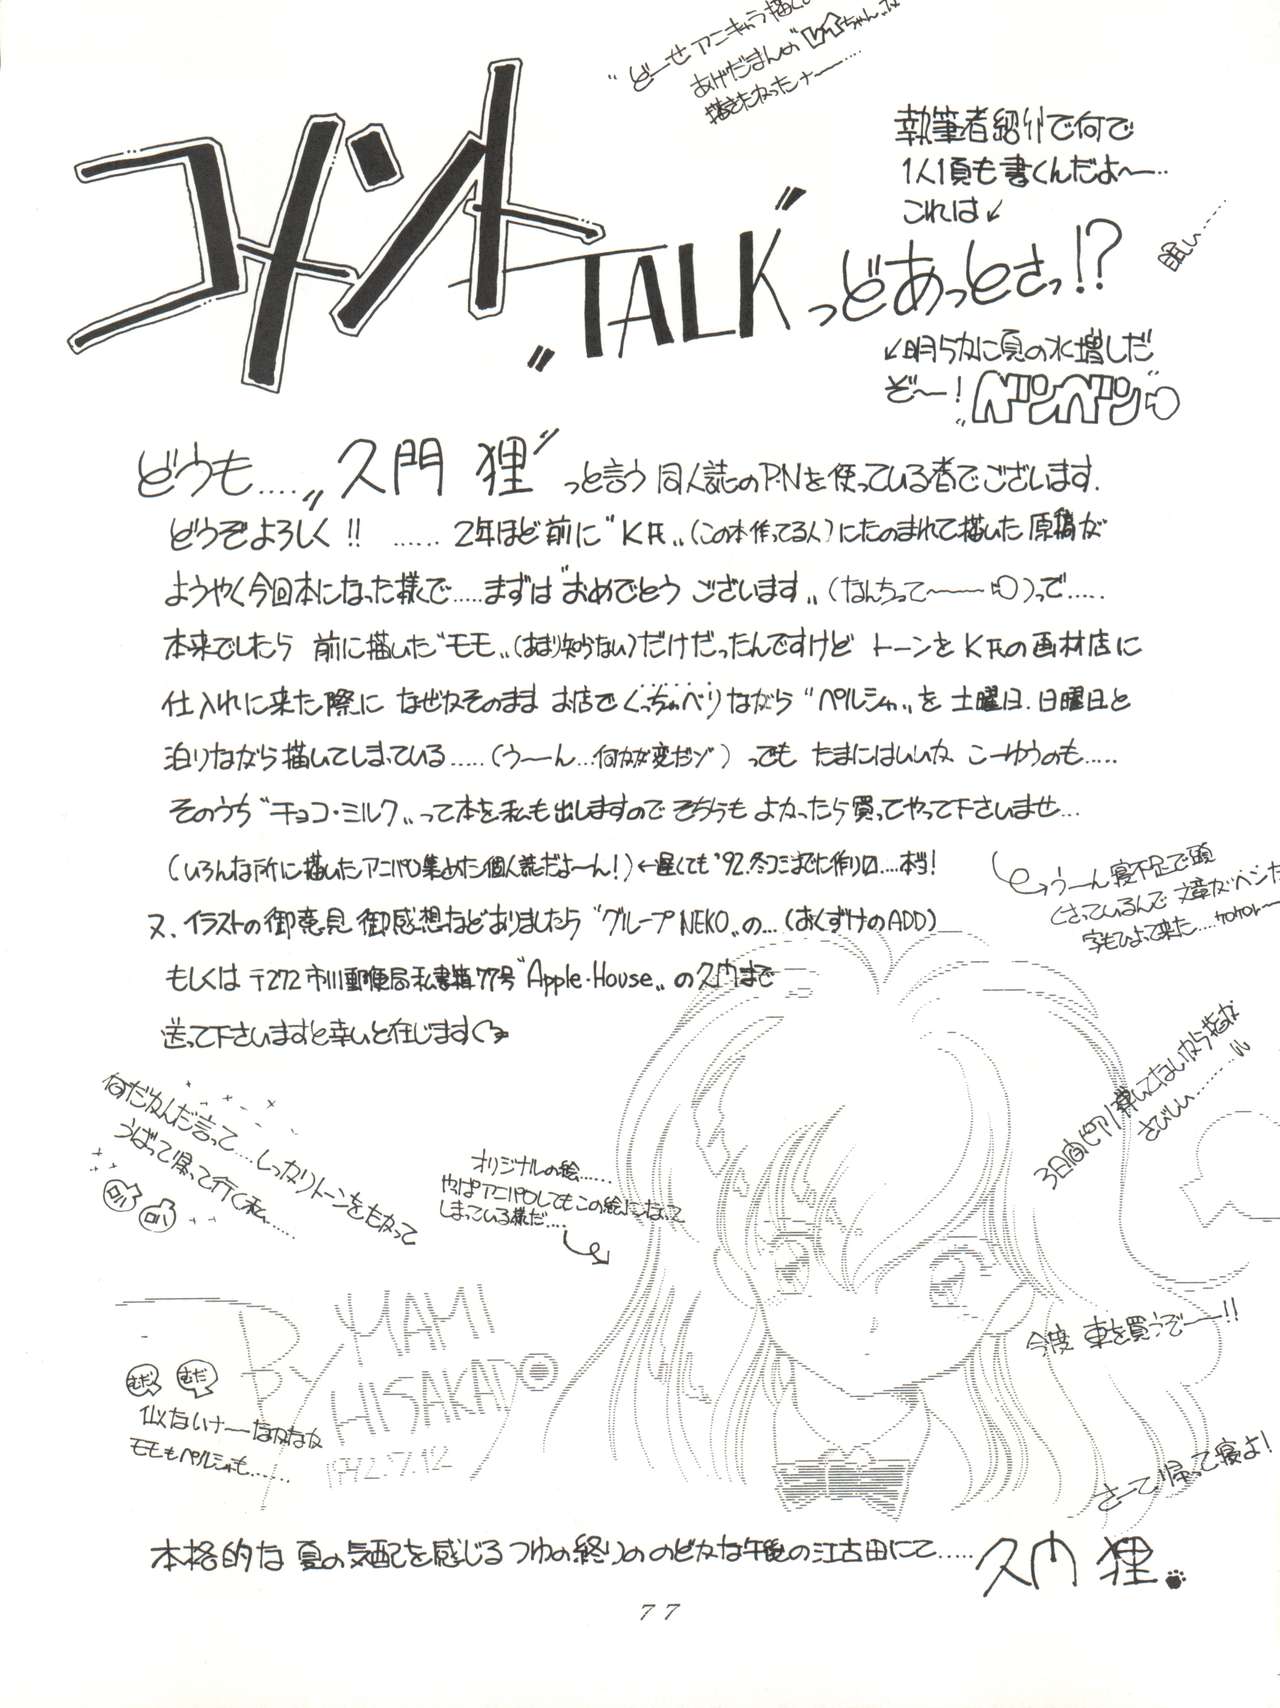 "どーせアニキャラ描く
あげだまんの
描きたかったナー……
コメント
"TALK"っどあっとさっ!?
執筆者紹介で何で
1人1頁も書くんだよ〜…
これは↙
眠い……
↙明らかに夏の水増しだ
ぞ〜! "ペンペン"
どうも…."久門 狸"っと言う 同人誌のP.Nを使っている者でございます.
どうぞよろしく!! …… 2年ほど前に"K氏"(この本作ってる人)にたのまれて描いた原稿が
ようやく今回本になった様で…..まずは"おめでとう ございます"(なんちって〜〜)って…..
本来でしたら 前に描いた"モモ"(あまり知らない)だけだったんですけど トーンをK氏の画材店に
仕入れに来た際に なぜかそのまま お店でくっちゃべりながら "ペルシャ"を 土曜日.日曜日と
泊りながら描いてしまっている……(う〜ん…何か変だゾ)っでも たまにはいいか こーゆうのも…..
そのうち"チョコ・ミルク"って本を私も出しますので そちらも よかったら買ってやって下さいませ…
(いろんな所に描いたアニパロ集めた個人誌だよ〜ん!)←遅くても'92.冬コミまでに作りロ….本当!
→う〜ん 寝不足で頭
くさっているんで 文章がヘンだ
字もひよって来た….ケロケロ〜
又、イラストの御意見 御感想などありましたら "グループNEKO"の…(おくずけのADD)
もしくは 〒272 市川郵便局私書箱77号"Apple・House"の久門まで
送って下さいますと幸いと在じます
何だかんだ言って….しっかりトーンをもかって
うばって帰って行く私……
オリジナルの絵……
やぱアニパロしてもこの絵になって
しまっている様だ….
3日間ピアノ弾いてないから指が
さびしい………
By MAMI
HISAKADO
1992.7.12
むだ
むだ
似ないナーなかなか
モモもペルシャも……
今度 車を買うぞー!!
さーて帰って寝よ!
本格的な 夏の気配を感じる つゆの終りの のどかな午後の江古田にて….. 久門 狸.
77